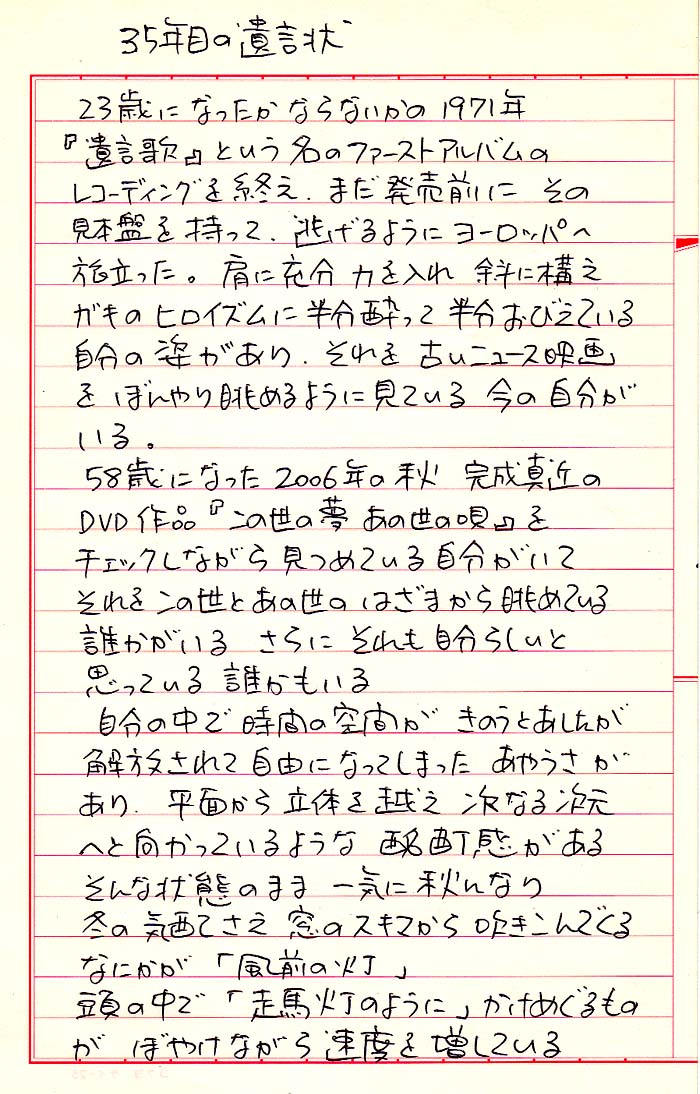 35年目の遺言状
23歳になったかならないかの 1971年
『遺言歌』という名のファーストアルバムの
レコーディングを終え. まだ発売前に その
見本盤を持って. 逃げるようにヨーロッパへ
旅立った。肩に充分 力を入れ 斜に構え
ガキのヒロイズムに半分酔って半分おびえている
自分の姿があり. それを 古いニュース映画
を ぼんやり眺めるように見ている 今の自分が
いる。
58歳になった2006年の秋 完成真近の
DVD作品『この世の夢 あの世の唄』を
チェックしながら見つめている自分がいて
それをこの世とあの世の はざまから眺めている
誰かがいる さらに それも自分らしいと
思っている 誰かもいる
自分の中で時間の空間が きのうとあしたが
解放されて自由になってしまった あやうさが
あり. 平面から立体を越え 次なる次元
へと向かっているような 酩酊感がある
そんな状態のまま 一気に秋んなり
冬の気配さえ 窓のスキマから吹きこんでくる
なにかが「風前の灯」
頭の中で「走馬灯のように」かけめぐるもの
が ぼやけながら速度を増している